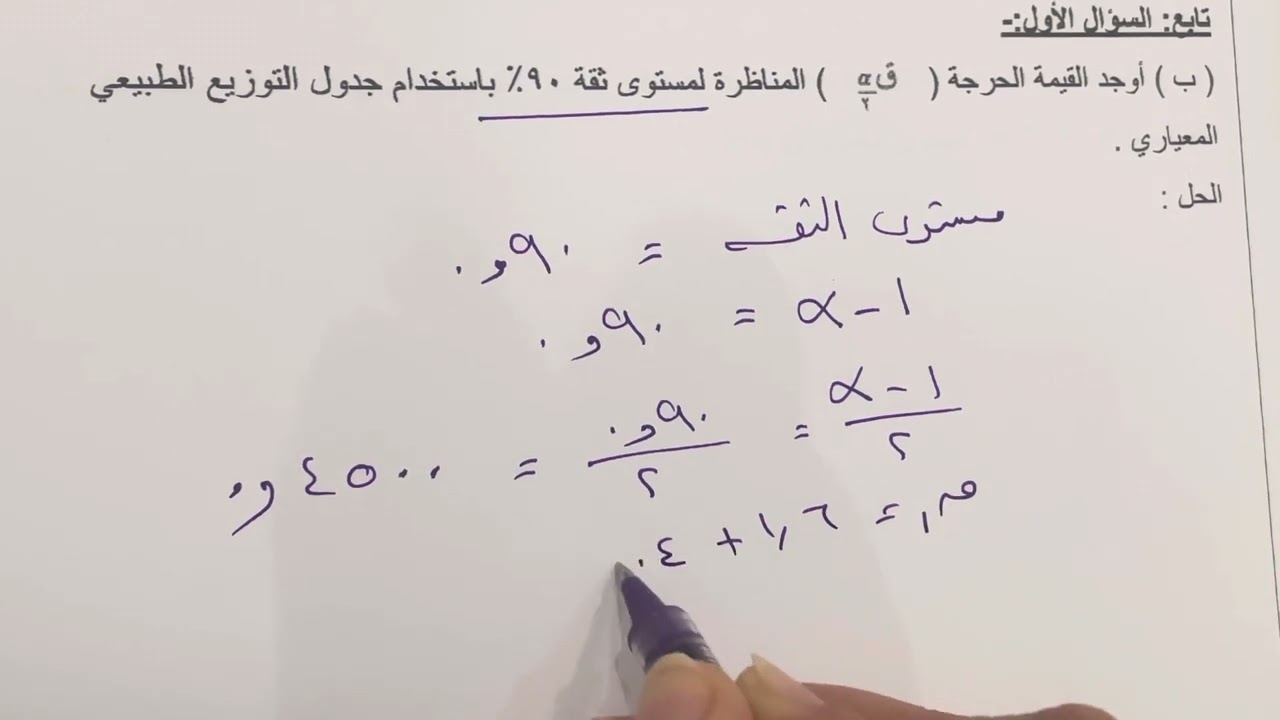 تابع: السؤال الأول:-
( ب ) أوجد القيمة الحرجة ( ق α/٢ ) المناظرة لمستوى ثقة ٩٠٪ باستخدام جدول التوزيع الطبيعي
المعياري .
الحل :
مستوى الثقة = ٠,٩٠
١ - α = ٠,٩٠
(١ - α)/٢ = ٠,٩٠/٢ = ٠,٤٥٠٠
= ١,٦ + ٠٤